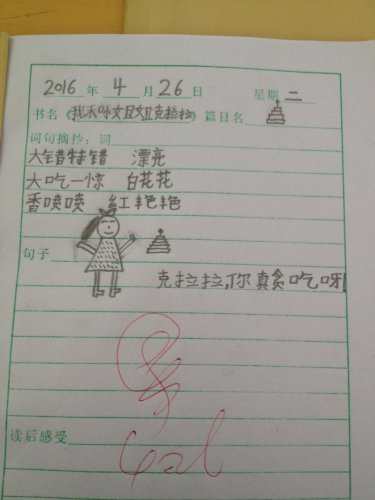 2016 年 4 月 26 日 星期 二
书名《我和姐姐克拉拉》篇目名
词句摘抄:词
大错特错 漂亮
大吃一惊 白花花
香喷喷 红艳艳
句子
克拉拉,你真贪吃呀!
读后感受